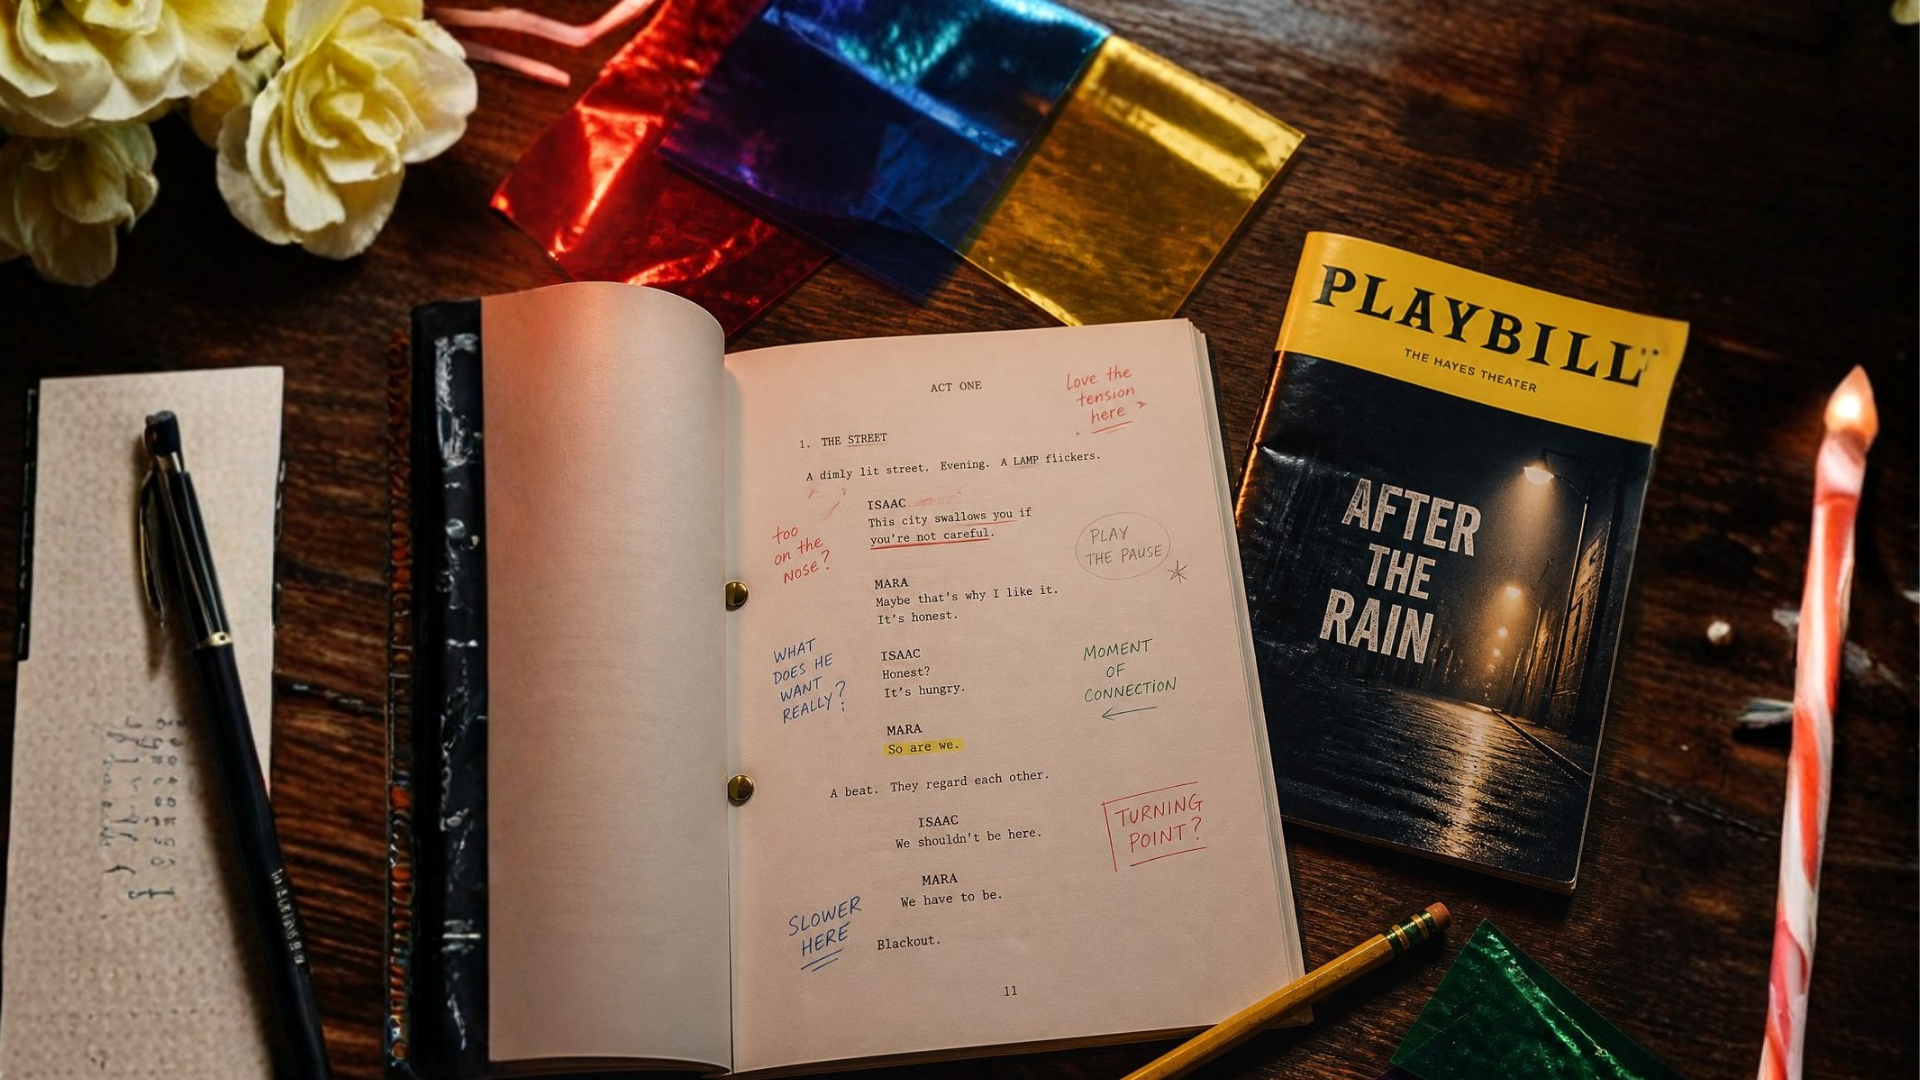 ACT ONE
Love the
tension
here
1. THE STREET
A dimly lit street. Evening. A LAMP flickers.
ISAAC
This city swallows you if
you're not careful.
too
on the
nose?
PLAY
THE PAUSE
MARA
Maybe that's why I like it.
It's honest.
WHAT
DOES HE
WANT
REALLY?
ISAAC
Honest?
It's hungry.
MOMENT
OF
CONNECTION
MARA
So are we.
A beat. They regard each other.
ISAAC
We shouldn't be here.
TURNING
POINT?
MARA
We have to be.
SLOWER
HERE
Blackout.
11
PLAYBILL
THE HAYES THEATER
AFTER
THE
RAIN